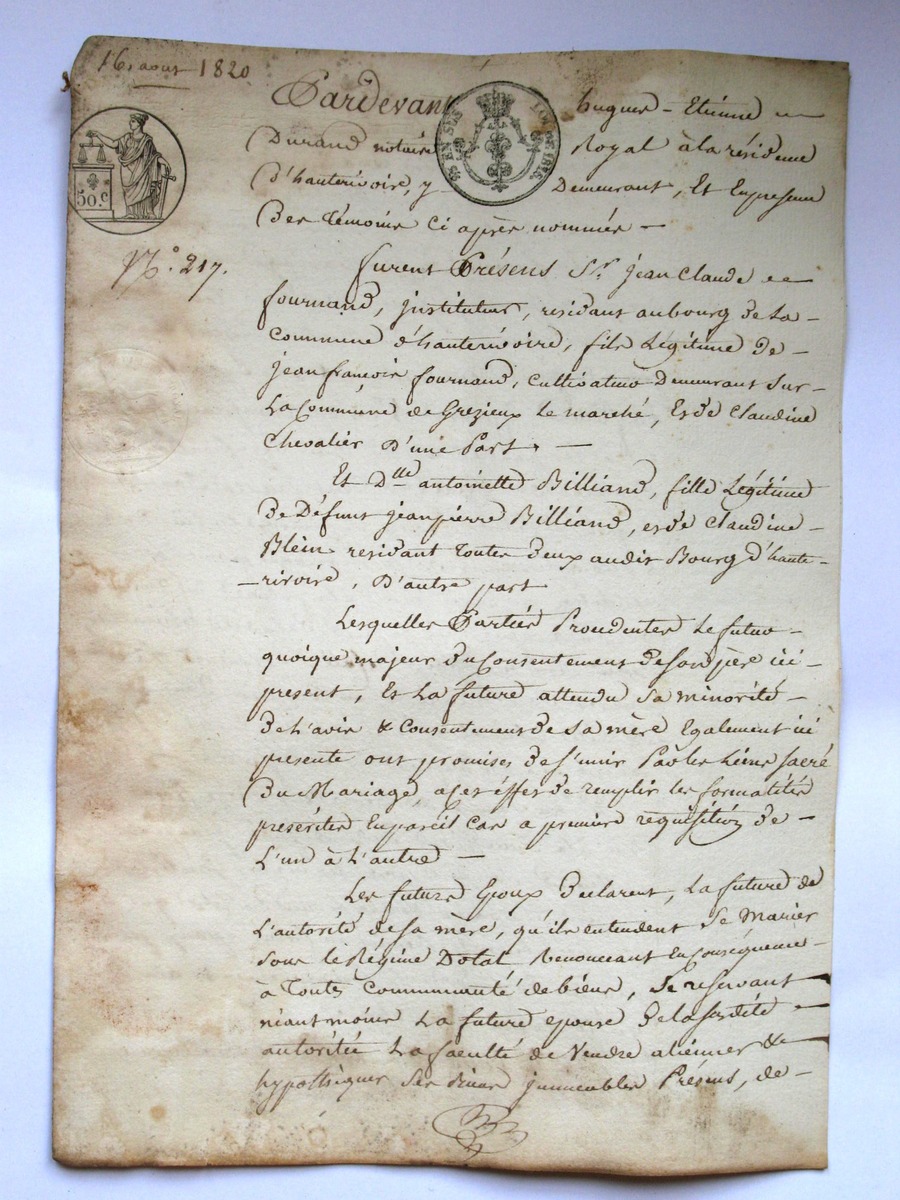 16 aout 1820
Pardevant hugues - Etienne
Durand notaire Royal à la résidence
d'hauterivoire, y Demeurant, Et En presence
Des Témoins Ci après nommés —
50.c
EN SUS
LOI DE 1816.
N.° 217.
furent Présens S.r jean Claude
fournand, instituteur, residant au bourg de La -
Commune d'hauterivoire, fils Légitime De -
jean françois fournand, Cultivateur Demeurant Sur -
La Commune de Grezieux le marché, Et de Claudine
Chevalier D'une Part. —
Et D.lle antoinette Billiand, fille Légitime
De Défunt jean pierre Billiand, et de Claudine -
Blein residant Toutes Deux audit Bourg d'haute
- rivoire, D'autre part
Lesquelles Parties Procedentes Le futur -
quoique majeur Du Consentement De Son père ici -
present, Et La future attendu Sa minorité -
De L'avis & Consentement De Sa mère Egalement ici
presente ont promises De S'unir Par les Liens Sacré
Du Mariage, a Cet éffet De remplir les formalités
prescrites En pareil Cas a première requisition De -
L'un à L'autre —
Les futurs Epoux Declarent, La future de
L'autorité de Sa mère, qu'ils entendent Se Marier
Sous le Régime Dotal Renonceant En Conséquence -
à Toute Communauté de biens, Se reservant
néantmoins La future epouse De la Susdite -
autorité La faculté de Vendre aliénner &
hypothéquer Ses Biens jmmeubles Présens, de -